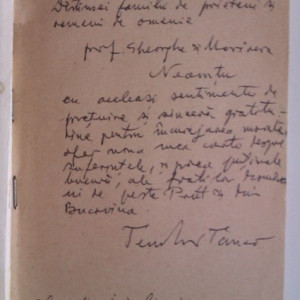 Distinsei familii de prieteni și
oameni de omenie
prof. Gheorghe și Marioara
Neamțu
cu aceleași sentimente de
prețuire și sinceră gratitu-
dine pentru încurajarea morală
a mea carte despre
suferințele, și prea puținele
bucurii, ale fraților români
de peste Prut și din
Bucovina.
Teodor Tanco